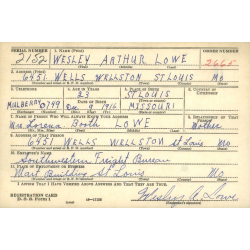 SERIAL NUMBER 1. NAME (Print) ORDER NUMBER
2152 WESLEY ARTHUR LOWE 2665
2. ADDRESS (Print)
6451 WELLS WELLSTON ST LOUIS MO
3. TELEPHONE 4. AGE IN YEARS 5. PLACE OF BIRTH 6. COUNTRY OF CITIZENSHIP
23 ST LOUIS
MULBERRY 0749 DATE OF BIRTH
Dec 9 1916 MISSOURI
7. NAME OF PERSON WHO WILL ALWAYS KNOW YOUR ADDRESS 8. RELATIONSHIP OF THAT PERSON
Mrs Lorena Booth LOWE Mother
9. ADDRESS OF THAT PERSON
6451 WELLS WELLSTON St Louis MO
10. EMPLOYER'S NAME
Southwestern Freight Bureau
11. PLACE OF EMPLOYMENT OR BUSINESS
Mart Building St Louis MO
I AFFIRM THAT I HAVE VERIFIED ABOVE ANSWERS AND THAT THEY ARE TRUE.
REGISTRATION CARD
D. S. S. Form 1
Wesley A Lowe